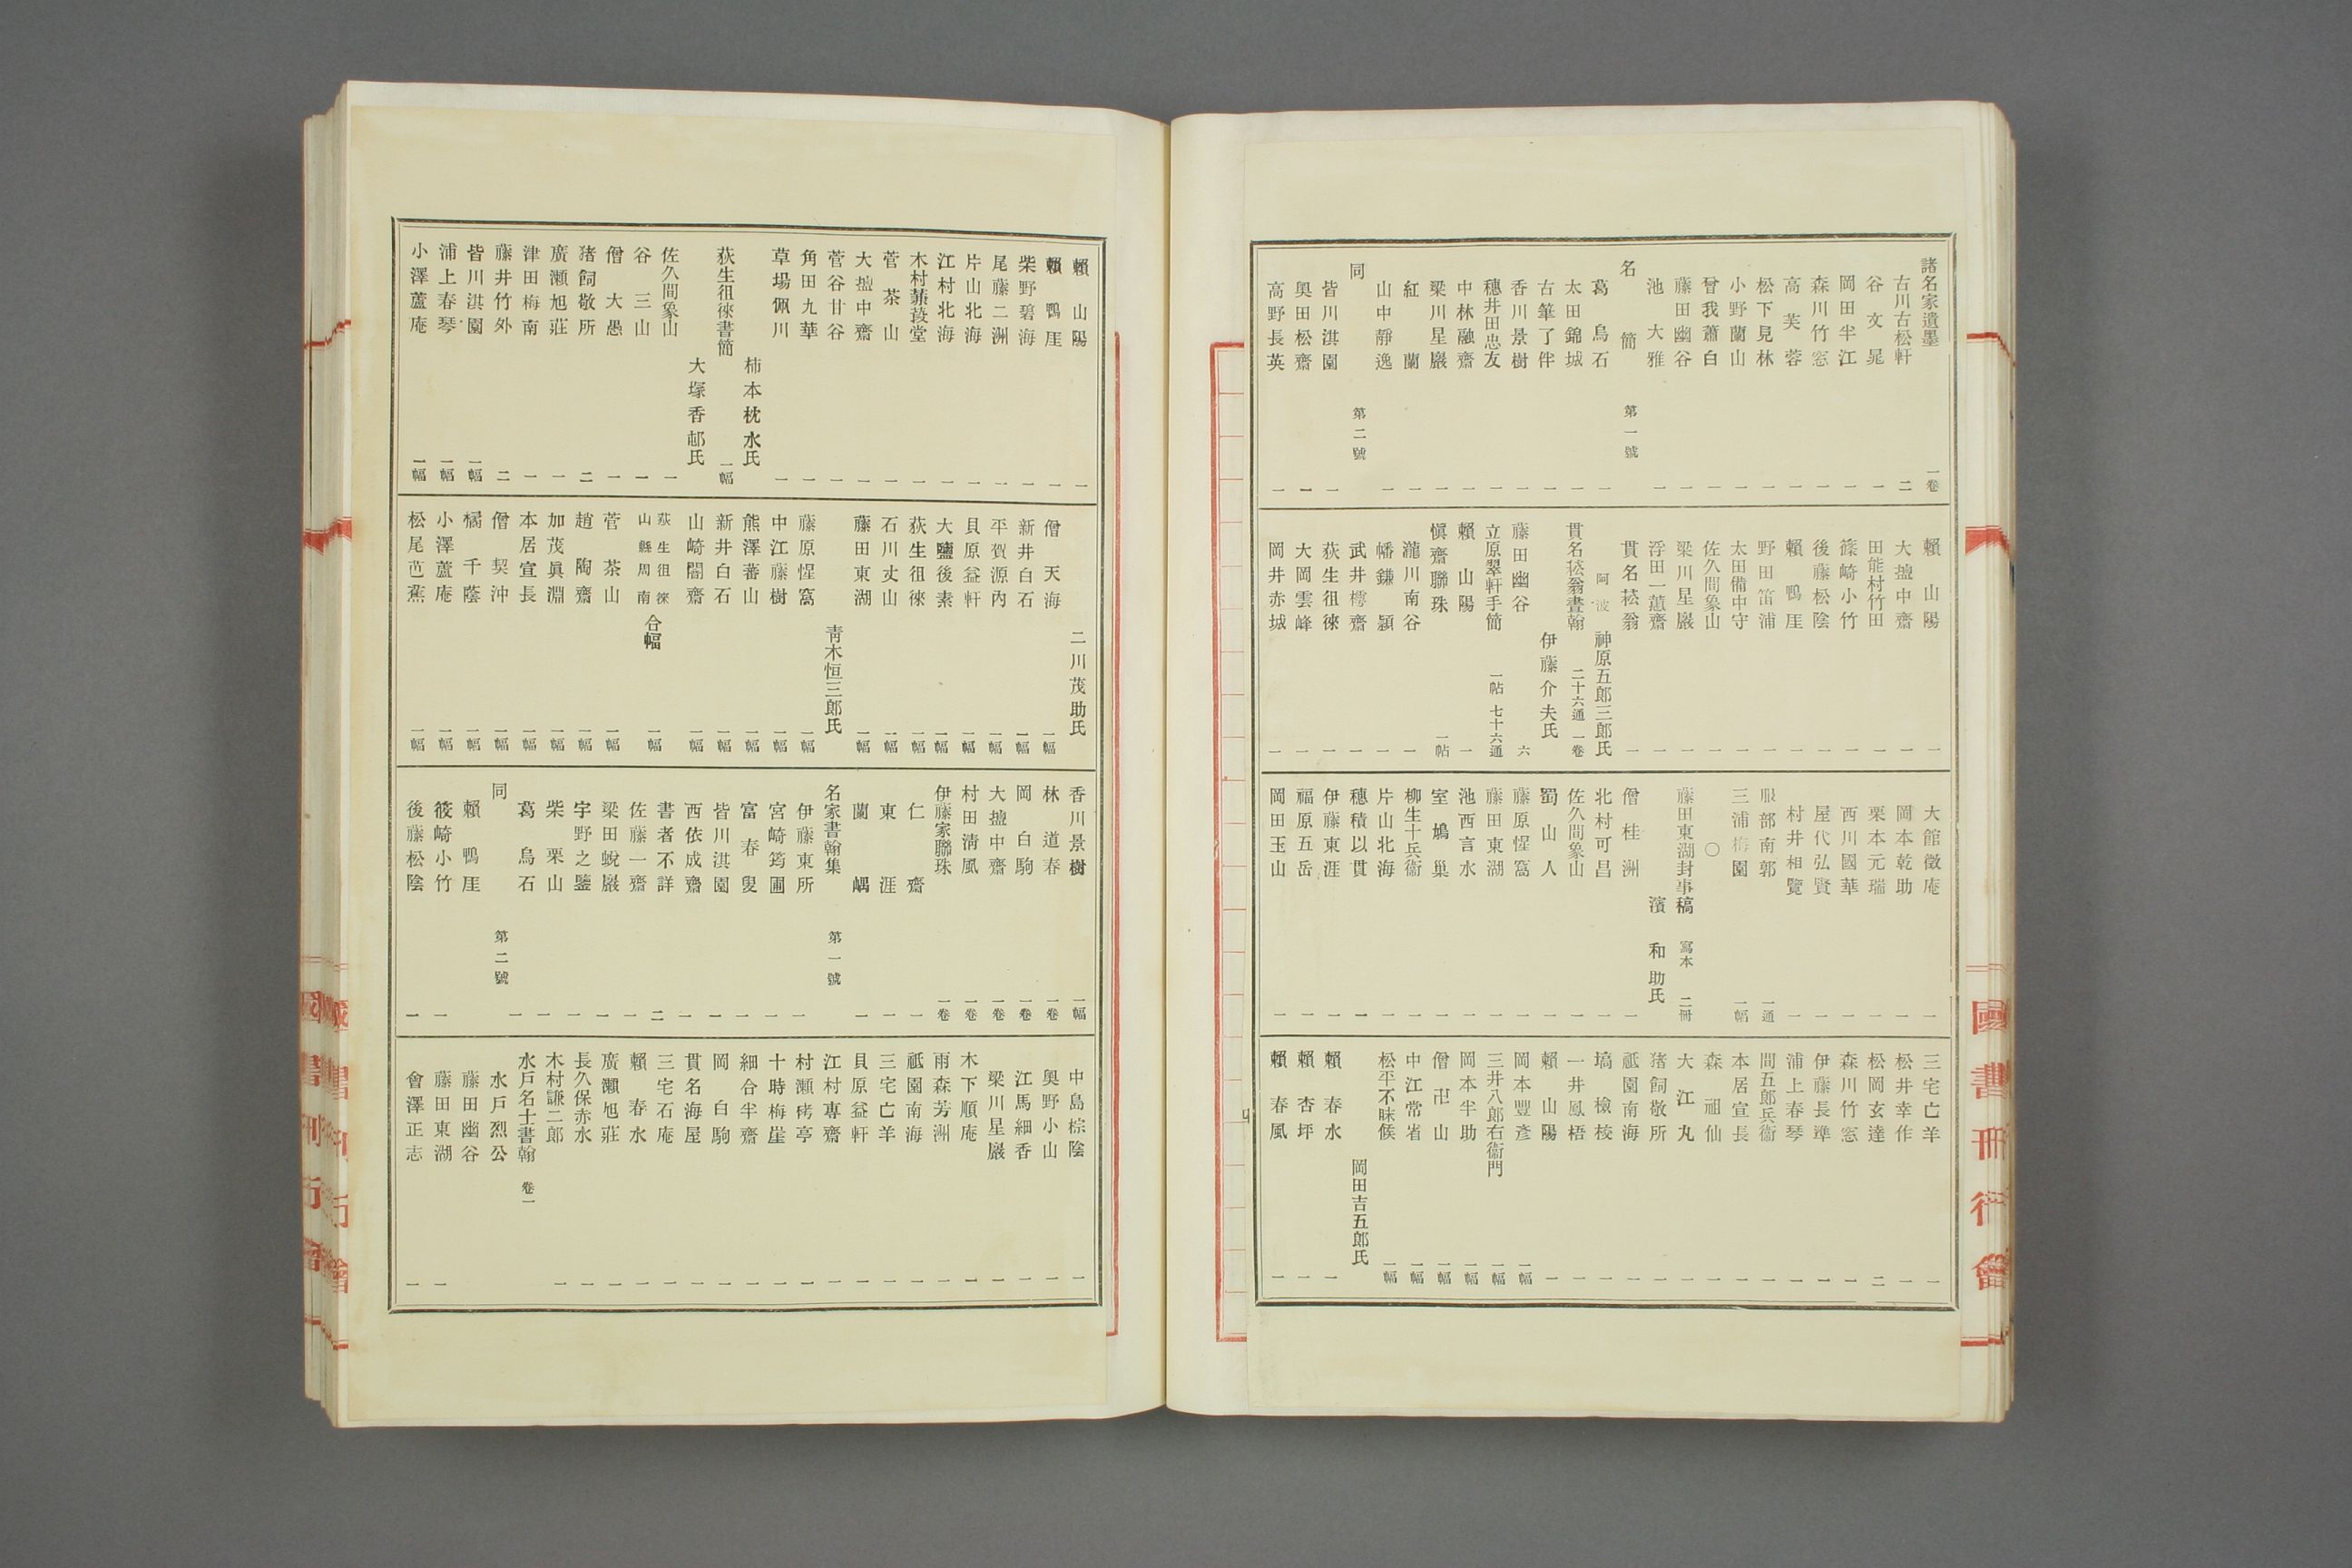 諸名家遺墨 一卷
古川古松軒 二
谷文晁 一
岡田半江 一
森川竹窓 一
高芙蓉 一
松下見林 一
小野蘭山 一
曾我蕭白 一
藤田幽谷 一
池大雅 一
名簡 第一號
葛烏石 一
太田錦城 一
古筆了伴 一
香川景樹 一
穗井田忠友 一
中林融齋 一
梁川星巖 一
紅蘭 一
山中靜逸 一
同 第二號
皆川淇園 一
奥田松齋 一
高野長英 一
賴山陽 一
大塩中齋 一
田能村竹田 一
篠崎小竹 一
後藤松陰 一
賴鴨厓 一
野田笛浦 一
太田備中守 一
佐久間象山 一
梁川星巖 一
浮田一蕙齋 一
貫名菘翁 一
阿波 神原五郎三郎氏
貫名菘翁書翰 二十六通 一卷
伊藤介夫氏
藤田幽谷 六
立原翠軒手簡 一帖 七十六通
賴山陽 一
愼齋聯珠 一帖
瀧川南谷 一
幡鎌穎 一
武井樗齋 一
荻生徂徠 一
大岡雲峰 一
岡井赤城 一
大館徵庵 一
岡本乾助 一
栗本元瑞 一
西川國華 一
屋代弘賢 一
村井相覽 一
服部南郭 一通
三浦梅園 一幅
○
藤田東湖封事稿 寫本 二冊
濱和助氏
僧桂洲 一
北村可昌 一
佐久間象山 一
蜀山人 一
藤原惺窩 一
藤田東湖 一
池西言水 一
室鳩巢 一
柳生十兵衞 一
片山北海 一
穗積以貫 一
伊藤東涯 一
福原五岳 一
岡田玉山 一
三宅亡羊 一
松井幸作 一
松岡玄達 二
森川竹窓 一
伊藤長準 一
浦上春琴 一
間五郎兵衞 一
本居宣長 一
森祖仙 一
大江丸 一
猪飼敬所 一
祗園南海 一
塙檢校 一
一井鳳梧 一
賴山陽 一
岡本豐彥 一幅
三井八郎右衞門 一幅
岡本半助 一幅
僧卍山 一幅
中江常省 一幅
松平不昧候 一幅
岡田吉五郎氏
賴春水 一
賴杏坪 一
賴春風 一
賴山陽 一
賴鴨厓 一
柴野碧海 一
尾藤二洲 一
片山北海 一
江村北海 一
木村蒹葭堂 一
菅茶山 一
大塩中齋 一
菅谷甘谷 一
角田九華 一
草場佩川 一
柿本枕水氏
荻生徂徠書簡 一幅
大塚香邨氏
佐久間象山 一
谷三山 一
僧大愚 一
猪飼敬所 二
廣瀬旭莊 一
津田梅南 一
藤井竹外 二
皆川淇園 一幅
浦上春琴 一幅
小澤蘆庵 一幅
二川茂助氏
僧天海 一幅
新井白石 一幅
平賀源內 一幅
貝原益軒 一幅
大鹽後素 一幅
荻生徂徠 一幅
石川丈山 一幅
藤田東湖 一幅
靑木恒三郎氏
藤原惺窩 一幅
中江藤樹 一幅
熊澤蕃山 一幅
新井白石 一幅
山崎闇齋 一幅
荻生徂徠
山縣周南 合幅 一幅
菅茶山 一幅
趙陶齋 一幅
加茂眞淵 一幅
本居宣長 一幅
僧契沖 一幅
橘千蔭 一幅
小澤蘆庵 一幅
松尾芭蕉 一幅
香川景樹 一幅
林道春 一卷
岡白駒 一卷
大塩中齋 一卷
村田淸風 一卷
伊藤家聯珠 一卷
仁齋 一
東涯 一
蘭嵎 一
名家書翰集 第一號
伊藤東所 一
宮崎筠圃 一
富春叟 一
皆川淇園 一
西依成齋 一
書者不詳 二
佐藤一齋 一
梁田蛻巖 一
宇野之鑒 一
柴栗山 一
葛烏石 一
同 第二號
賴鴨厓
筱崎小竹 一
後藤松陰 一
中島棕陰 一
奥野小山 一
江馬細香 一
梁川星巖 一
木下順庵 一
雨森芳洲 一
祗園南海 一
三宅亡羊 一
貝原益軒 一
江村專齋 一
村瀬栲亭 一
十時梅崖 一
細合半齋 一
岡白駒 一
貫名海屋 一
三宅石庵 一
賴春水 一
廣瀬旭莊 一
長久保赤水 一
木村謙二郎 一
水戶名士書翰 卷一
水戶烈公
藤田幽谷
藤田東湖 一
會澤正志 一
國書刊行會
國書刊行會